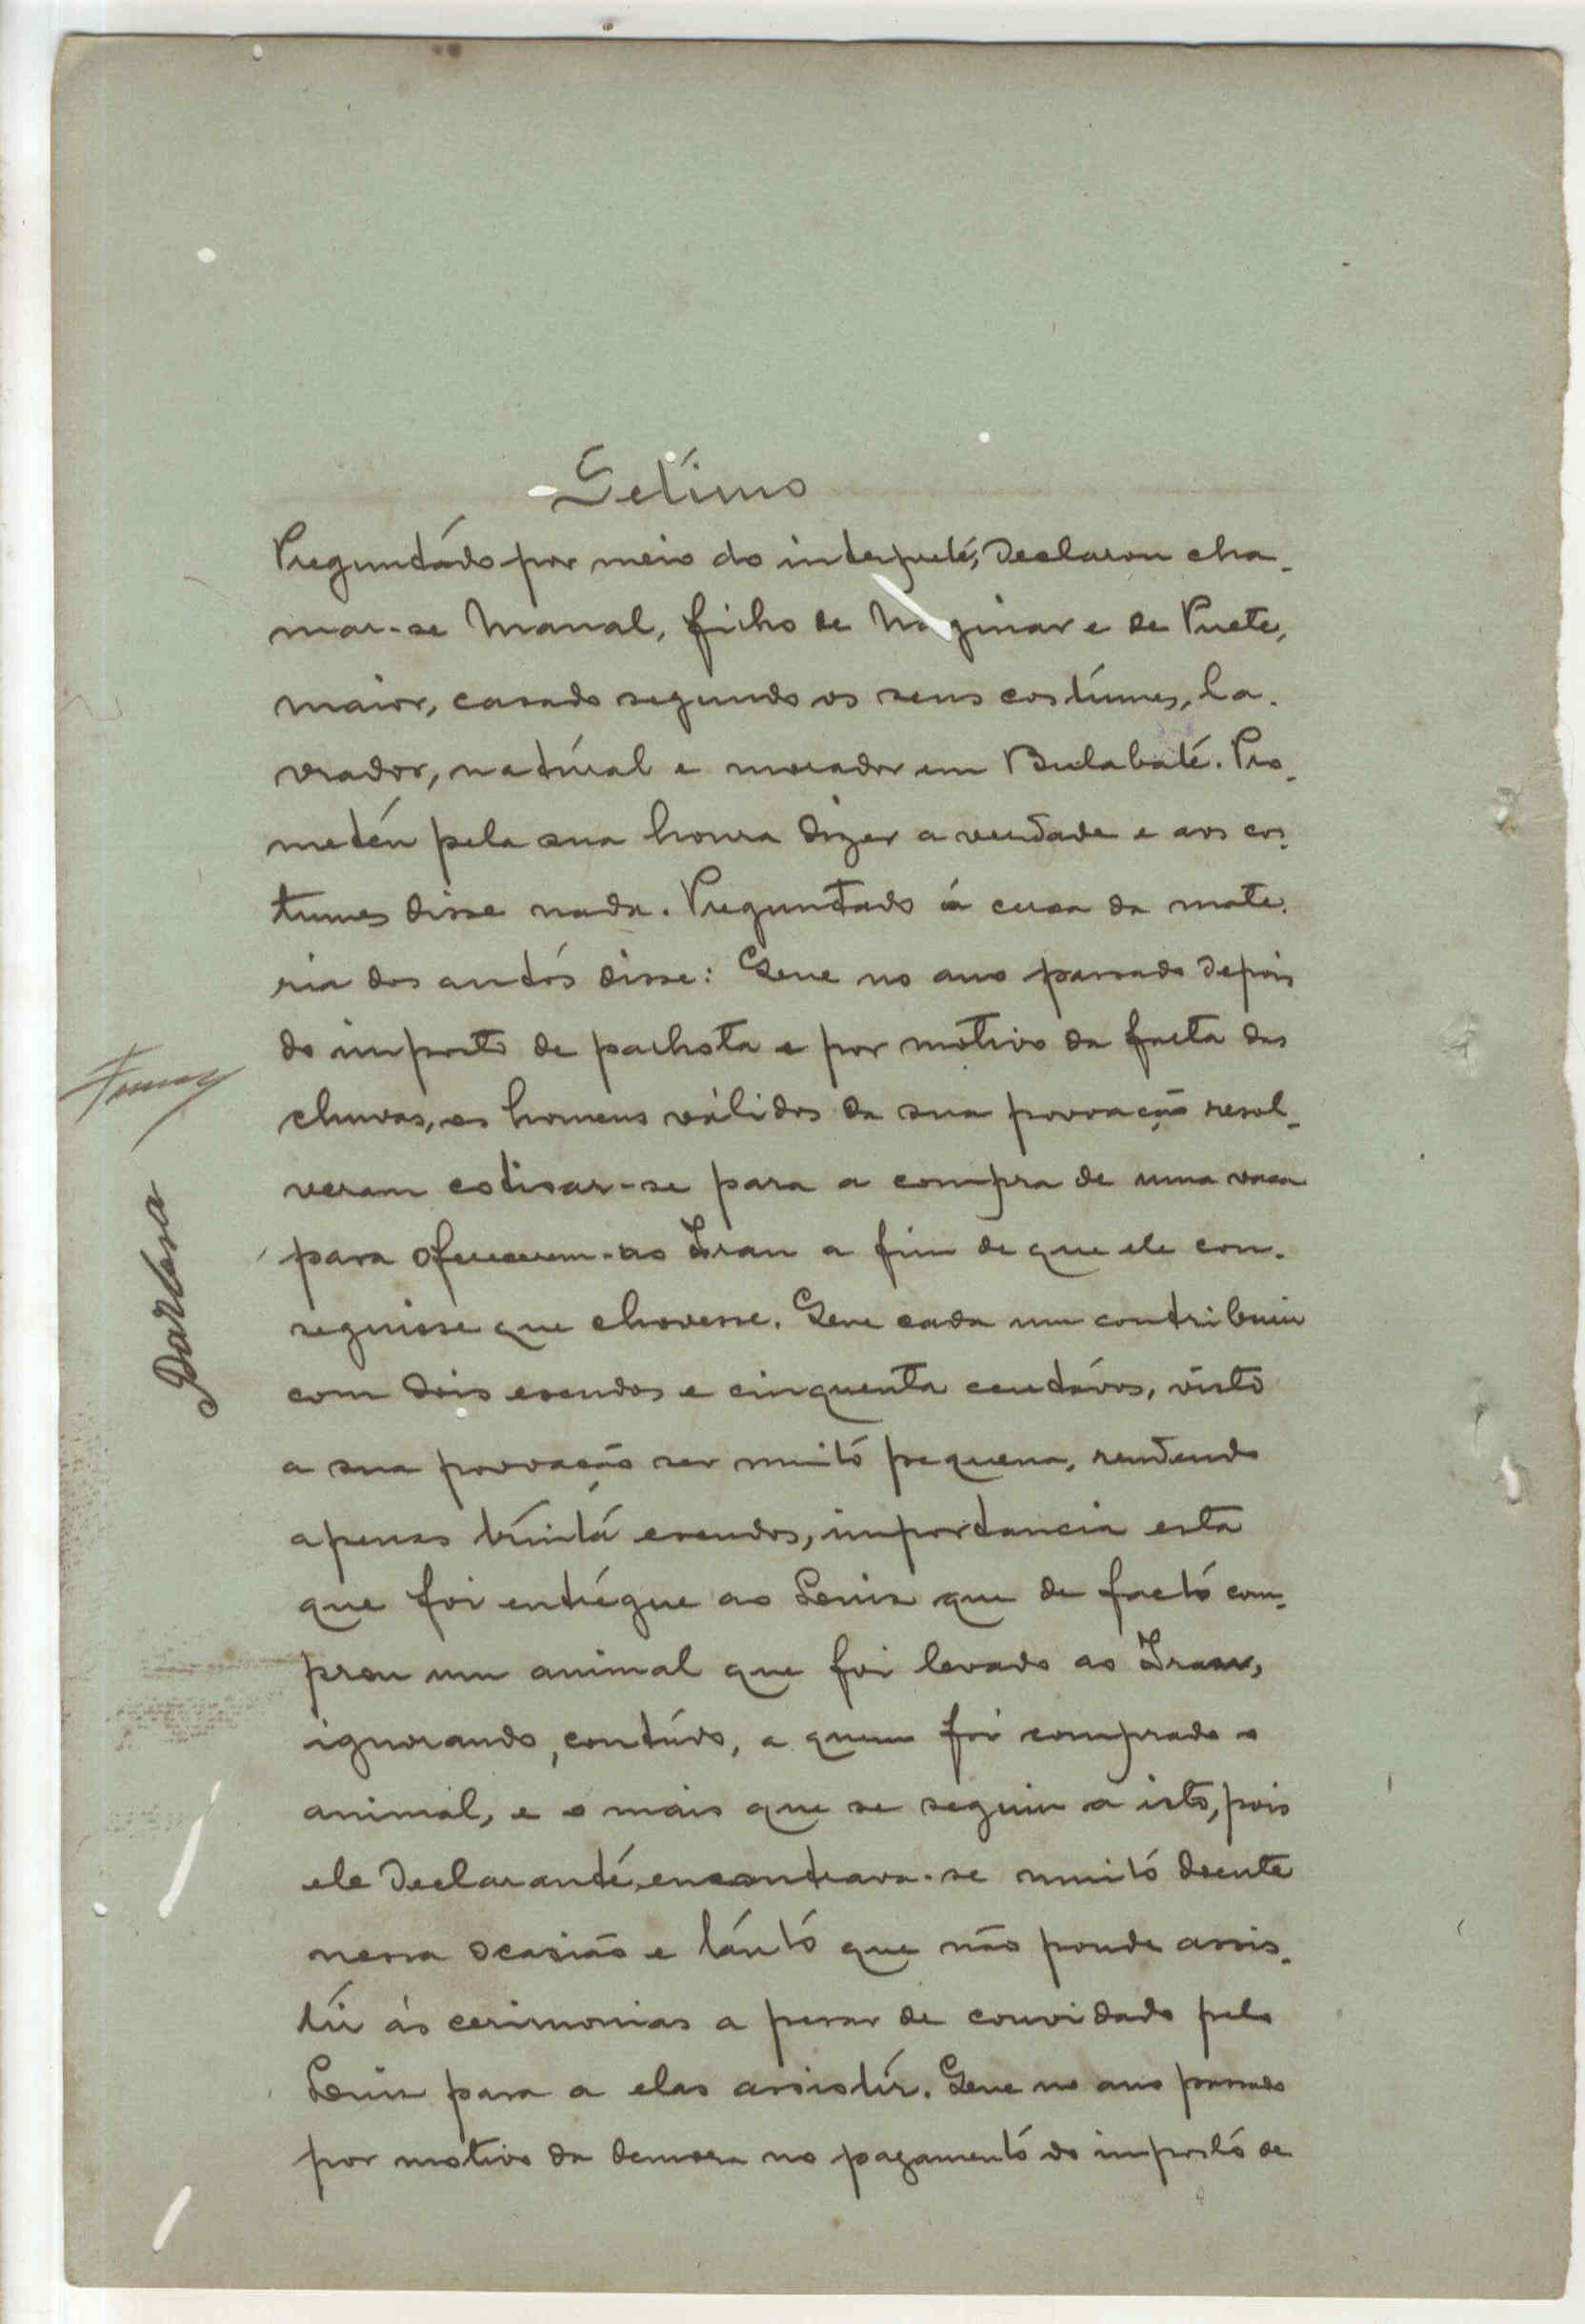 Setimo
Preguntado por meio do interprete, declarou cha-
mar-se Manal, filho de e de Puete,
maior, casado segundo os seus costumes, la-
vrador, natural e morador em Bulabaté. Pro-
meteu pela sua honra dizer a verdade e aos cos-
tumes disse nada. Preguntado á cerca da mate-
ria dos autos disse: Que no ano passado depois
do imposto de palhota e por motivo da falta das
chuvas, os homens válidos da sua povoação resol-
veram cotisar-se para a compra de uma vaca
para oferecerem-ao Iran a fim de que ele con-
seguisse que chovesse. Que cada um contribuiu
com dois escudos e cinquenta centavos, visto
a sua povoação ser muito pequena, rendendo
apenas trinta escudos, importancia esta
que foi entregue ao que de facto com-
prou um animal que foi levado ao Iran,
ignorando, contudo, a quem foi comprado o
animal, e o mais que se seguiu a isto, pois
ele declarante, encontrava-se muito doente
nessa ocasião e tanto que não poude assis-
tir ás cerimonias a pesar de convidado pelo
para a elas assistir. Que no ano passado
por motivo da demora no pagamento do imposto de
Barbosa